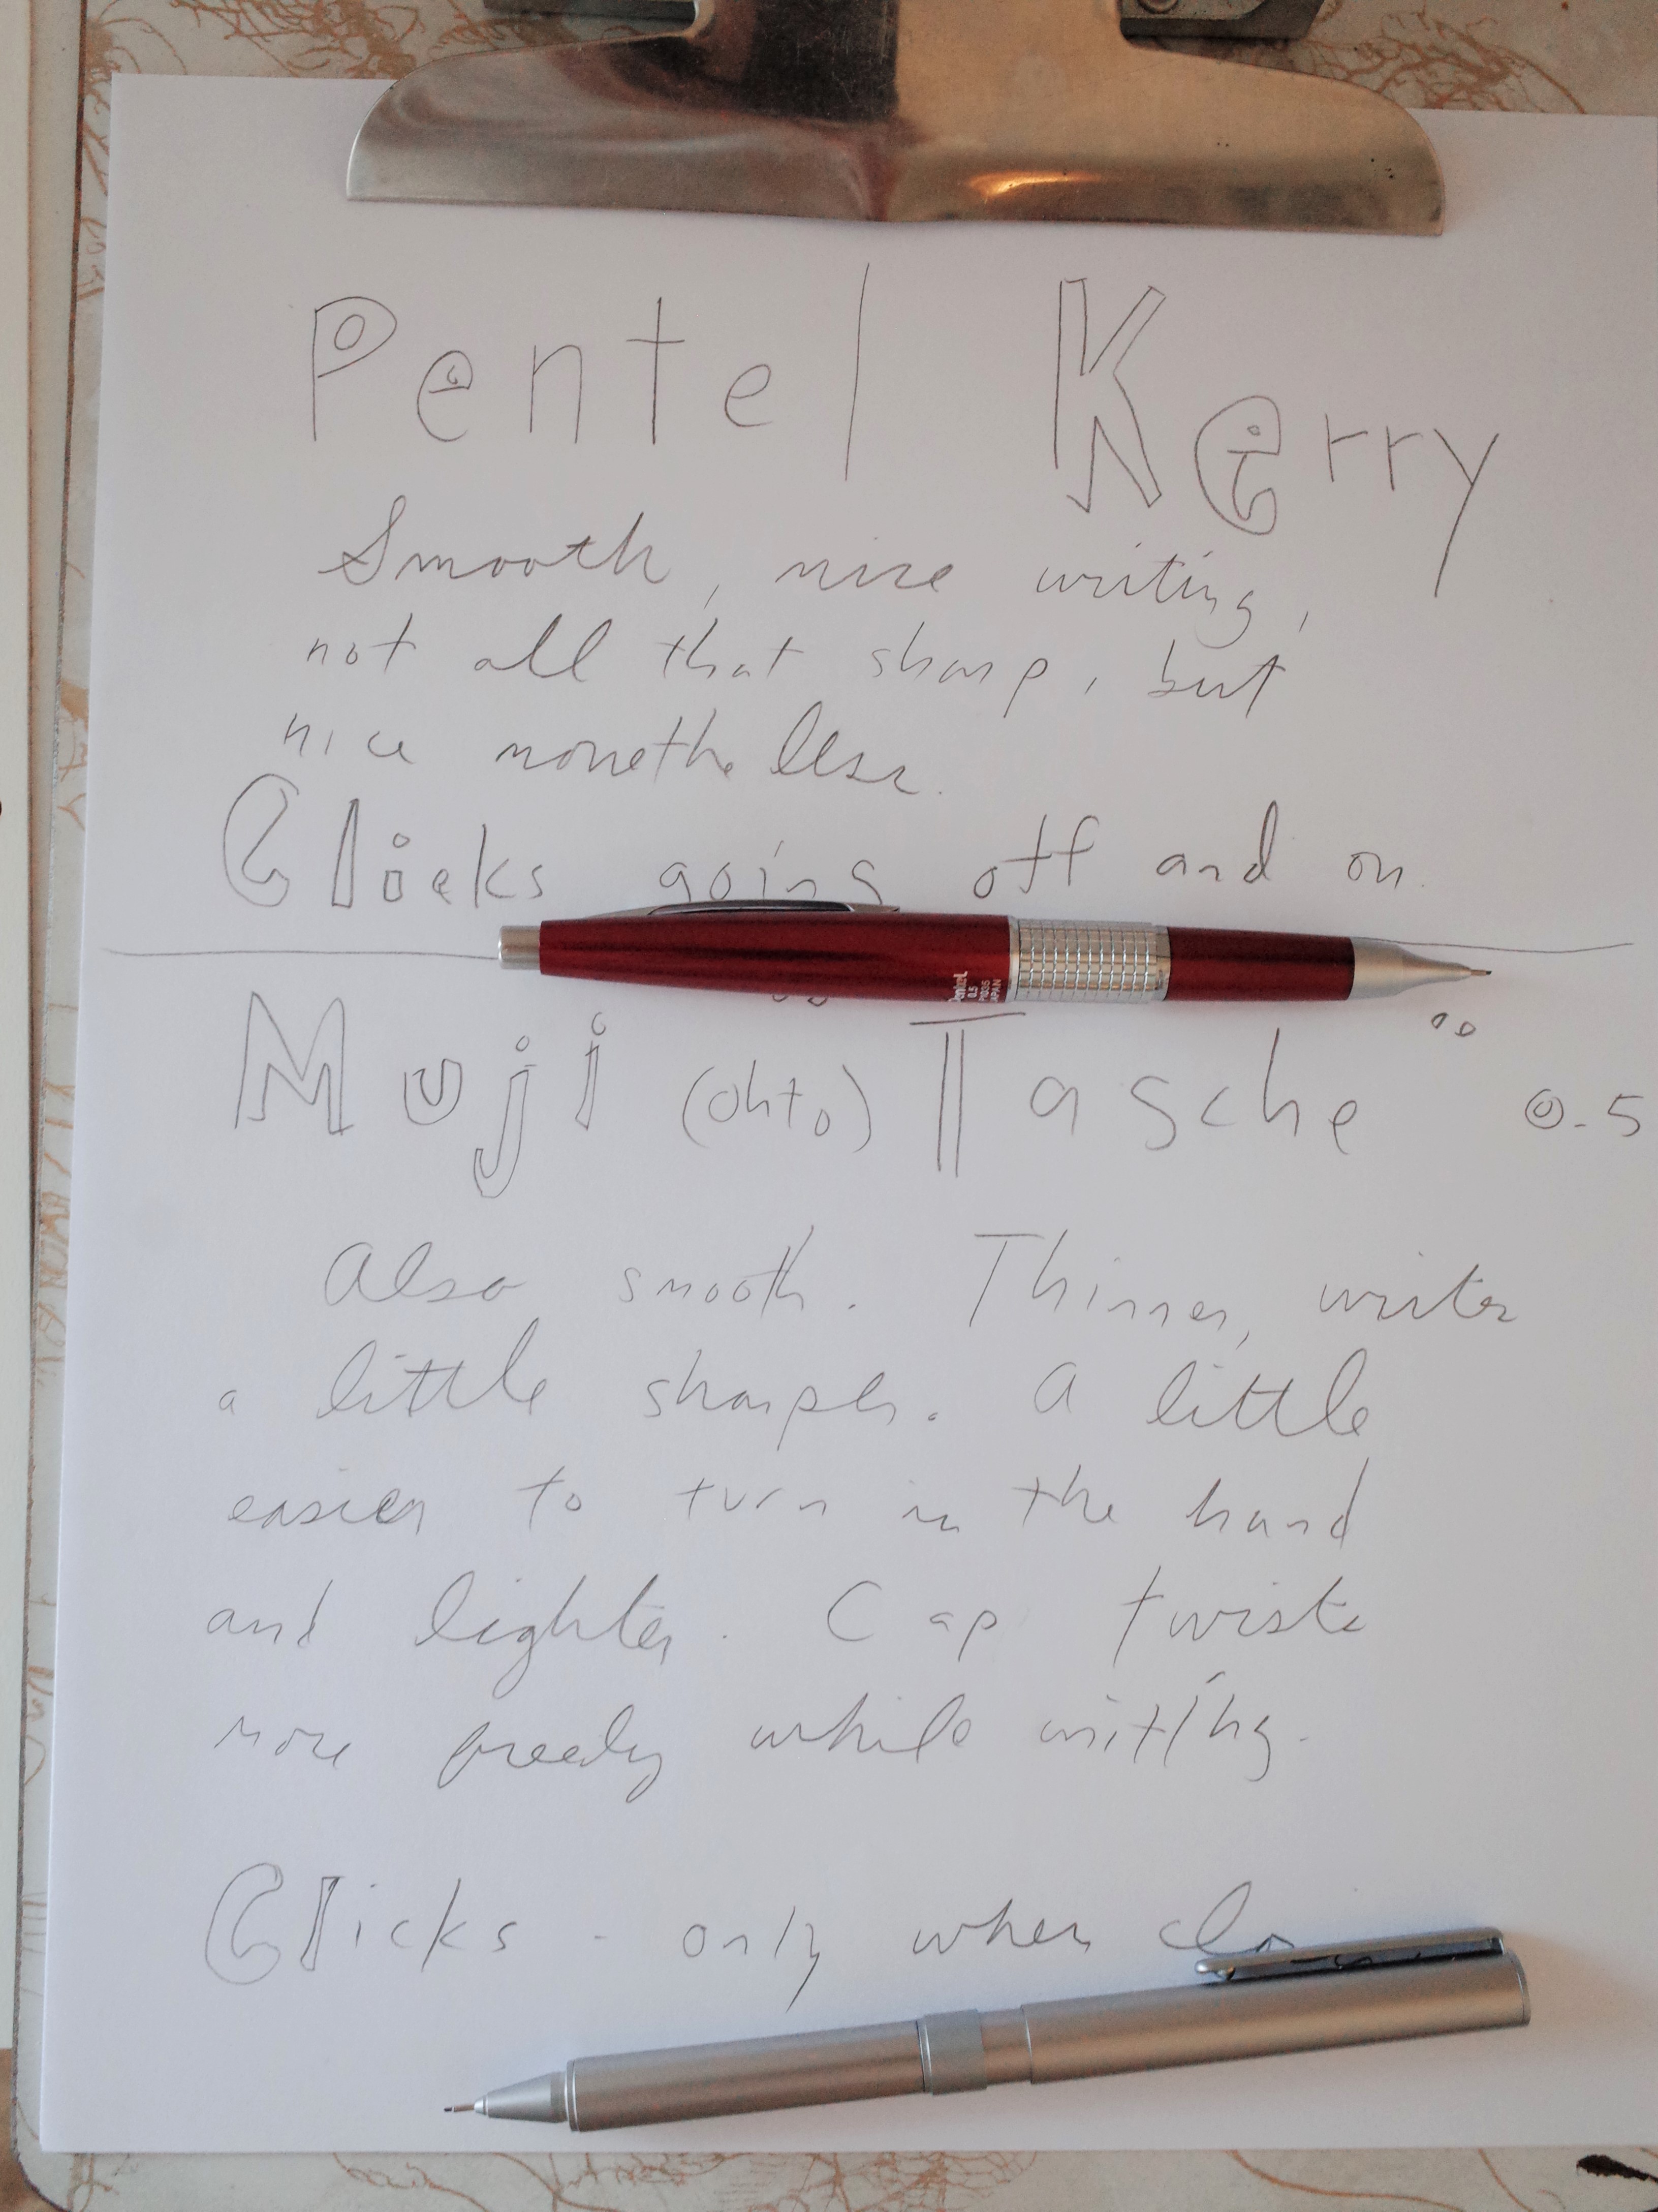 Pentel Kerry
Smooth, nice writing,
not all that sharp, but
nice nonetheless.
Clicks going off and on.
Pentel
0.5
P1035
JAPAN
"Muji (Ohto) Tasche" 0.5
Also smooth. Thinner, writes
a little sharper. A little
easier to turn in the hand
and lighter. Cap twists
more freely while writing.
Clicks - only when